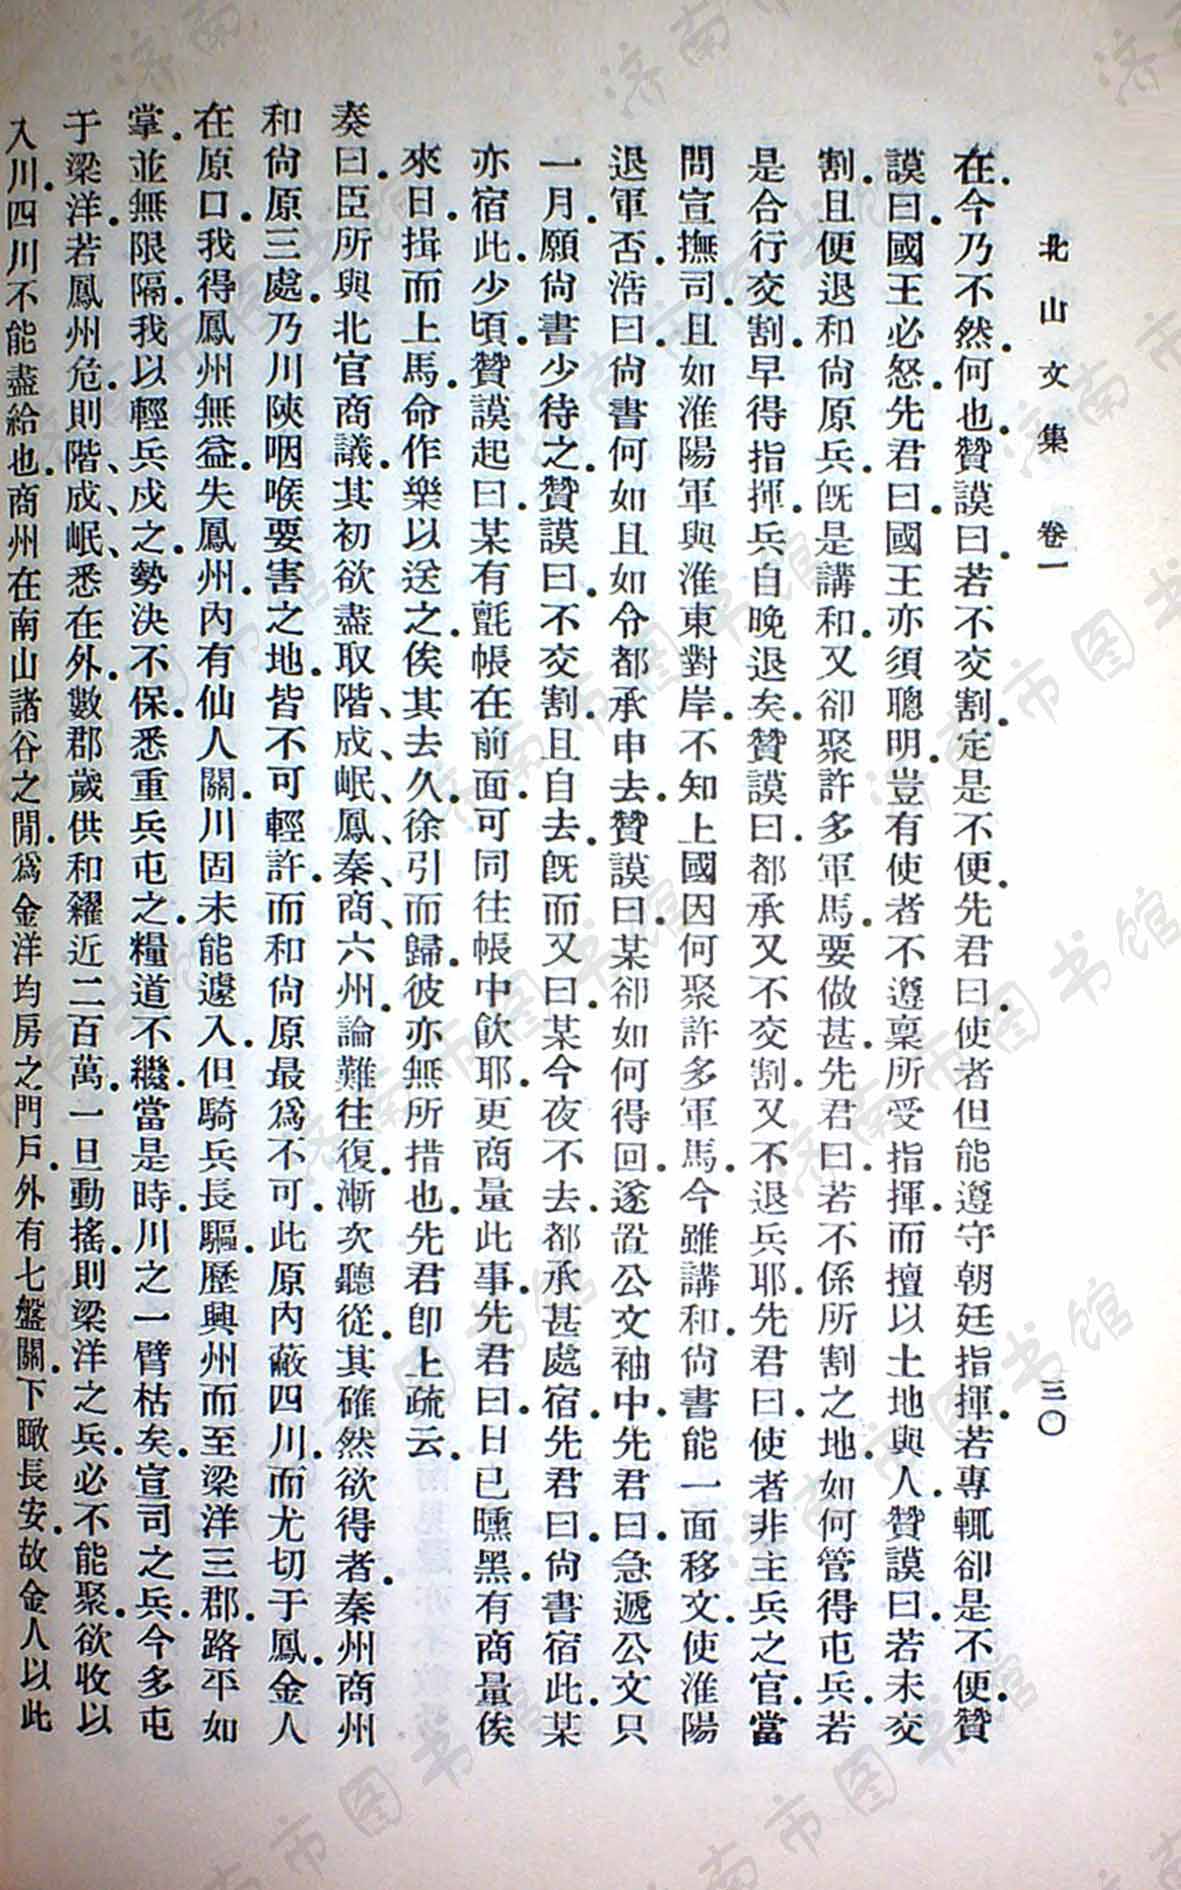 北山文集 卷一 三〇
在.今乃不然.何也.贊謨曰.若不交割.定是不便.先君曰.使者但能遵守朝廷指揮.若專輒卻是不便.贊
謨曰.國王必怒.先君曰.國王亦須聰明.豈有使者不遵稟所受指揮.而擅以土地與人.贊謨曰.若未交
割.且便退和尙原兵.旣是講和.又卻聚許多軍馬.要做甚.先君曰.若不係所割之地.如何管得屯兵.若
是合行交割.早得指揮.兵自晚退矣.贊謨曰.都承又不交割.又不退兵耶.先君曰.使者非主兵之官.當
問宣撫司.且如淮陽軍與淮東對岸.不知上國因何聚許多軍馬.今雖講和.尙書能一面移文.使淮陽
退軍否.浩曰.尙書何如.且如令都承申去.贊謨曰.某卻如何得回.遂置公文袖中.先君曰.急遞公文只
一月.願尙書少待之.贊謨曰.不交割.且自去.旣而又曰.某今夜不去.都承甚處宿.先君曰.尙書宿此.某
亦宿此.少頃.贊謨起曰.某有氈帳在前面.可同往帳中飮耶.更商量此事.先君曰.日已曛黑.有商量俟
來日.揖而上馬.命作樂以送之.俟其去久.徐引而歸.彼亦無所措也.先君卽上疏云.
奏曰.臣所與北官商議.其初欲盡取階、成、岷、鳳、秦、商六州.論難往復.漸次聽從.其確然欲得者.秦州商州
和尙原三處.乃川陝咽喉要害之地.皆不可輕許.而和尙原最爲不可.此原內蔽四川.而尤切于鳳.金人
在原口.我得鳳州無益.失鳳州.內有仙人關.川固未能遽入.但騎兵長驅.歷興州而至梁洋三郡.路平如
掌.並無限隔.我以輕兵戍之.勢決不保.悉重兵屯之.糧道不繼.當是時.川之一臂枯矣.宣司之兵.今多屯
于梁洋.若鳳州危.則階、成、岷、悉在外.數郡歲供和糴近二百萬.一旦動搖.則梁洋之兵.必不能聚.欲收以
入川.四川不能盡給也.商州在南山諸谷之閒.爲金洋均房之門戶.外有七盤關.下瞰長安.故金人以此